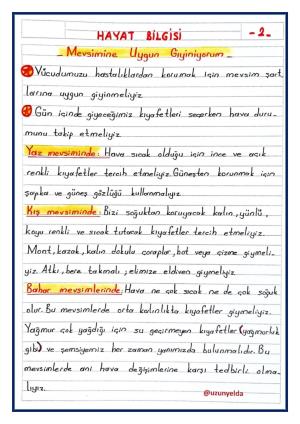 HAYAT BİLGİSİ -2-
- Mevsimine Uygun Giyiniyorum -
Vücudumuzu hastalıklardan korumak için mevsim şart
larına uygun giyinmeliyiz.
Gün içinde giyeceğimiz kıyafetleri seçerken hava duru-
munu takip etmeliyiz.
Yaz mevsiminde: Hava sıcak olduğu için ince ve açık
renkli kıyafetler tercih etmeliyiz. Güneşten korunmak için
şapka ve güneş gözlüğü kullanmalıyız.
Kış mevsiminde: Bizi soğuktan koruyacak kalın, yünlü,
koyu renkli ve sıcak tutacak kıyafetler tercih etmeliyiz.
Mont, kazak, kalın dokulu çoraplar, bot veya çizme giymeli-
yiz. Atkı, bere takmalı, elimize eldiven giymeliyiz.
Bahar mevsimlerinde: Hava ne çok sıcak ne de çok soğuk
olur. Bu mevsimlerde orta kalınlıkta kıyafetler giymeliyiz.
Yağmur çok yağdığı için su geçirmeyen kıyafetler (yağmurluk
gibi) ve şemsiyemiz her zaman yanımızda bulunmalıdır. Bu
mevsimlerde ani hava değişimlerine karşı tedbirli olma-
lıyız.
@uzunyelda